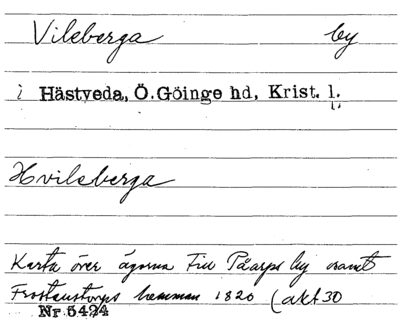 Vileberga by
i Hästveda, Ö.Göinge hd, Krist. l.
Hvileberga
Karta över ägorna Till Påarps by samt
Frostenstorps hemman 1820 (akt 30
Nr 5424